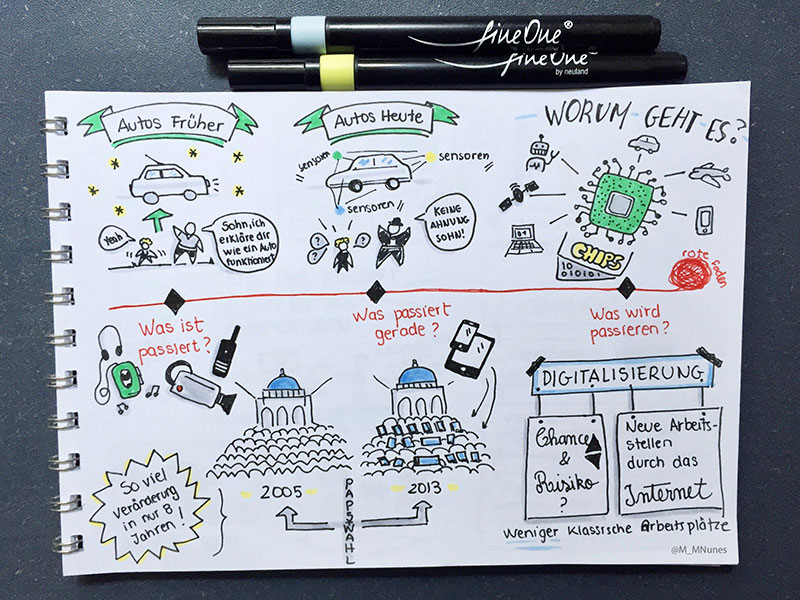 fineOne®
fineOne
by neuland
Autos Früher
Yeah
Sohn, ich
erkläre dir
wie ein Auto
funktioniert
Autos Heute
sensoren
sensoren
sensoren
?
?
?
KEINE
AHNUNG
SOHN!
WORUM GEHT ES?
CHIPS
10
010101
rote faden
Was ist
passiert?
Was passiert
gerade?
Was wird
passieren?
So viel
veränderung
in nur 8
Jahren!
2005
PAPSWAHL
2013
DIGITALISIERUNG
Chance
&
Raisiko
?
Neue Arbeits-
stellen
durch das
Internet
Weniger Klassische Arbeitsplätze
@M_MNunes